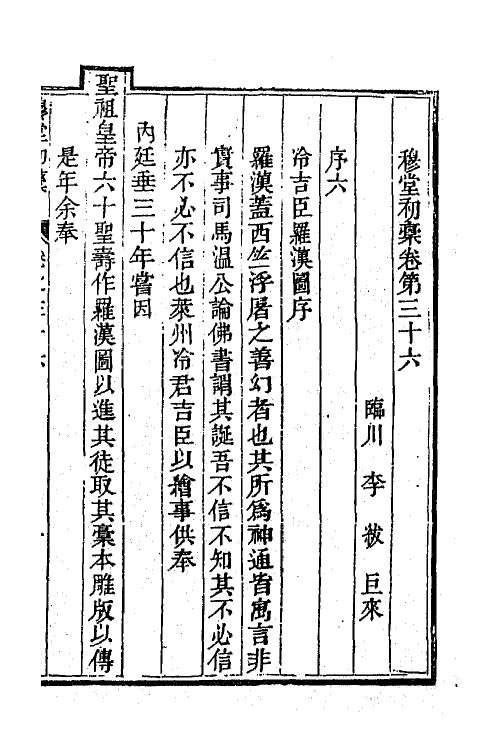 穆堂初稾卷第三十六
臨川 李紱 巨來
序六
冷吉臣羅漢圖序
羅漢蓋西竺浮屠之善幻者也其所爲神通皆寓言非
實事司馬溫公論佛書謂其誕吾不信不知其不必信
亦不必不信也萊州冷君吉臣以繪事供奉
內廷垂三十年嘗因
聖祖皇帝六十聖壽作羅漢圖以進其徒取其稾本雕版以傳
是年余奉
穆堂初稾 卷之三十六